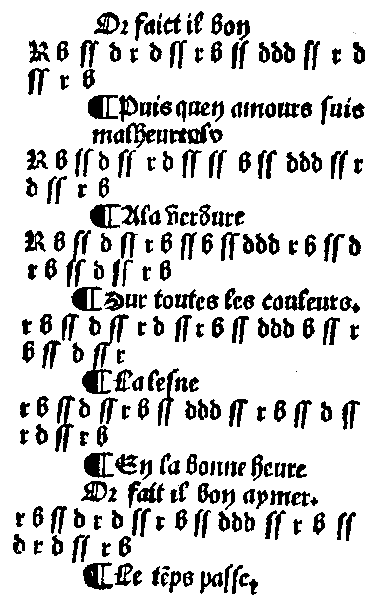 Or faict il bon
R b ſſ d r d ſſ r b ſſ ddd ſſ r d
ſſ r b
¶Puis quen amours ſuis
malheureulx
R b ſſ d ſſ r d ſſ ſſ b ſſ ddd ſſ r
d ſſ r b
¶A la verdure
R b ſſ d ſſ r b ſſ b ſſ ddd r b ſſ d
r b ſſ d ſſ r b
¶Sur toutes les couleurs.
r b ſſ d ſſ r d ſſ r b ſſ ddd b ſſ r
b ſſ d ſſ r
¶La leſne
r b ſſ d ſſ r b ſſ ddd ſſ r b ſſ d ſſ
r d ſſ r b
¶En la bonne heure
Or fait il bon aymer.
r b ſſ d r d ſſ r b ſſ ddd ſſ r b ſſ
d r d ſſ r b
¶Le tēps paſſe.